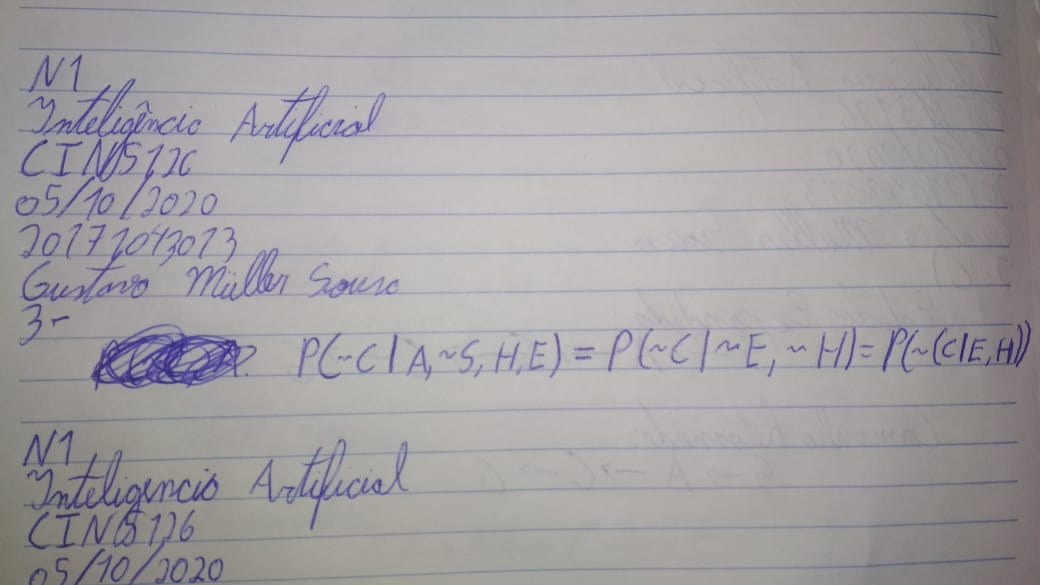 N1
Inteligêncio Artificial
CIN05126
05/10/2020
201712043013
Gustavo Müller Souso
3-
P(~C|A,~S,H,E) = P(~C|~E,~H) = P(~(C|E,H))
N1
Inteligencio Artificial
CIN05126
05/10/2020